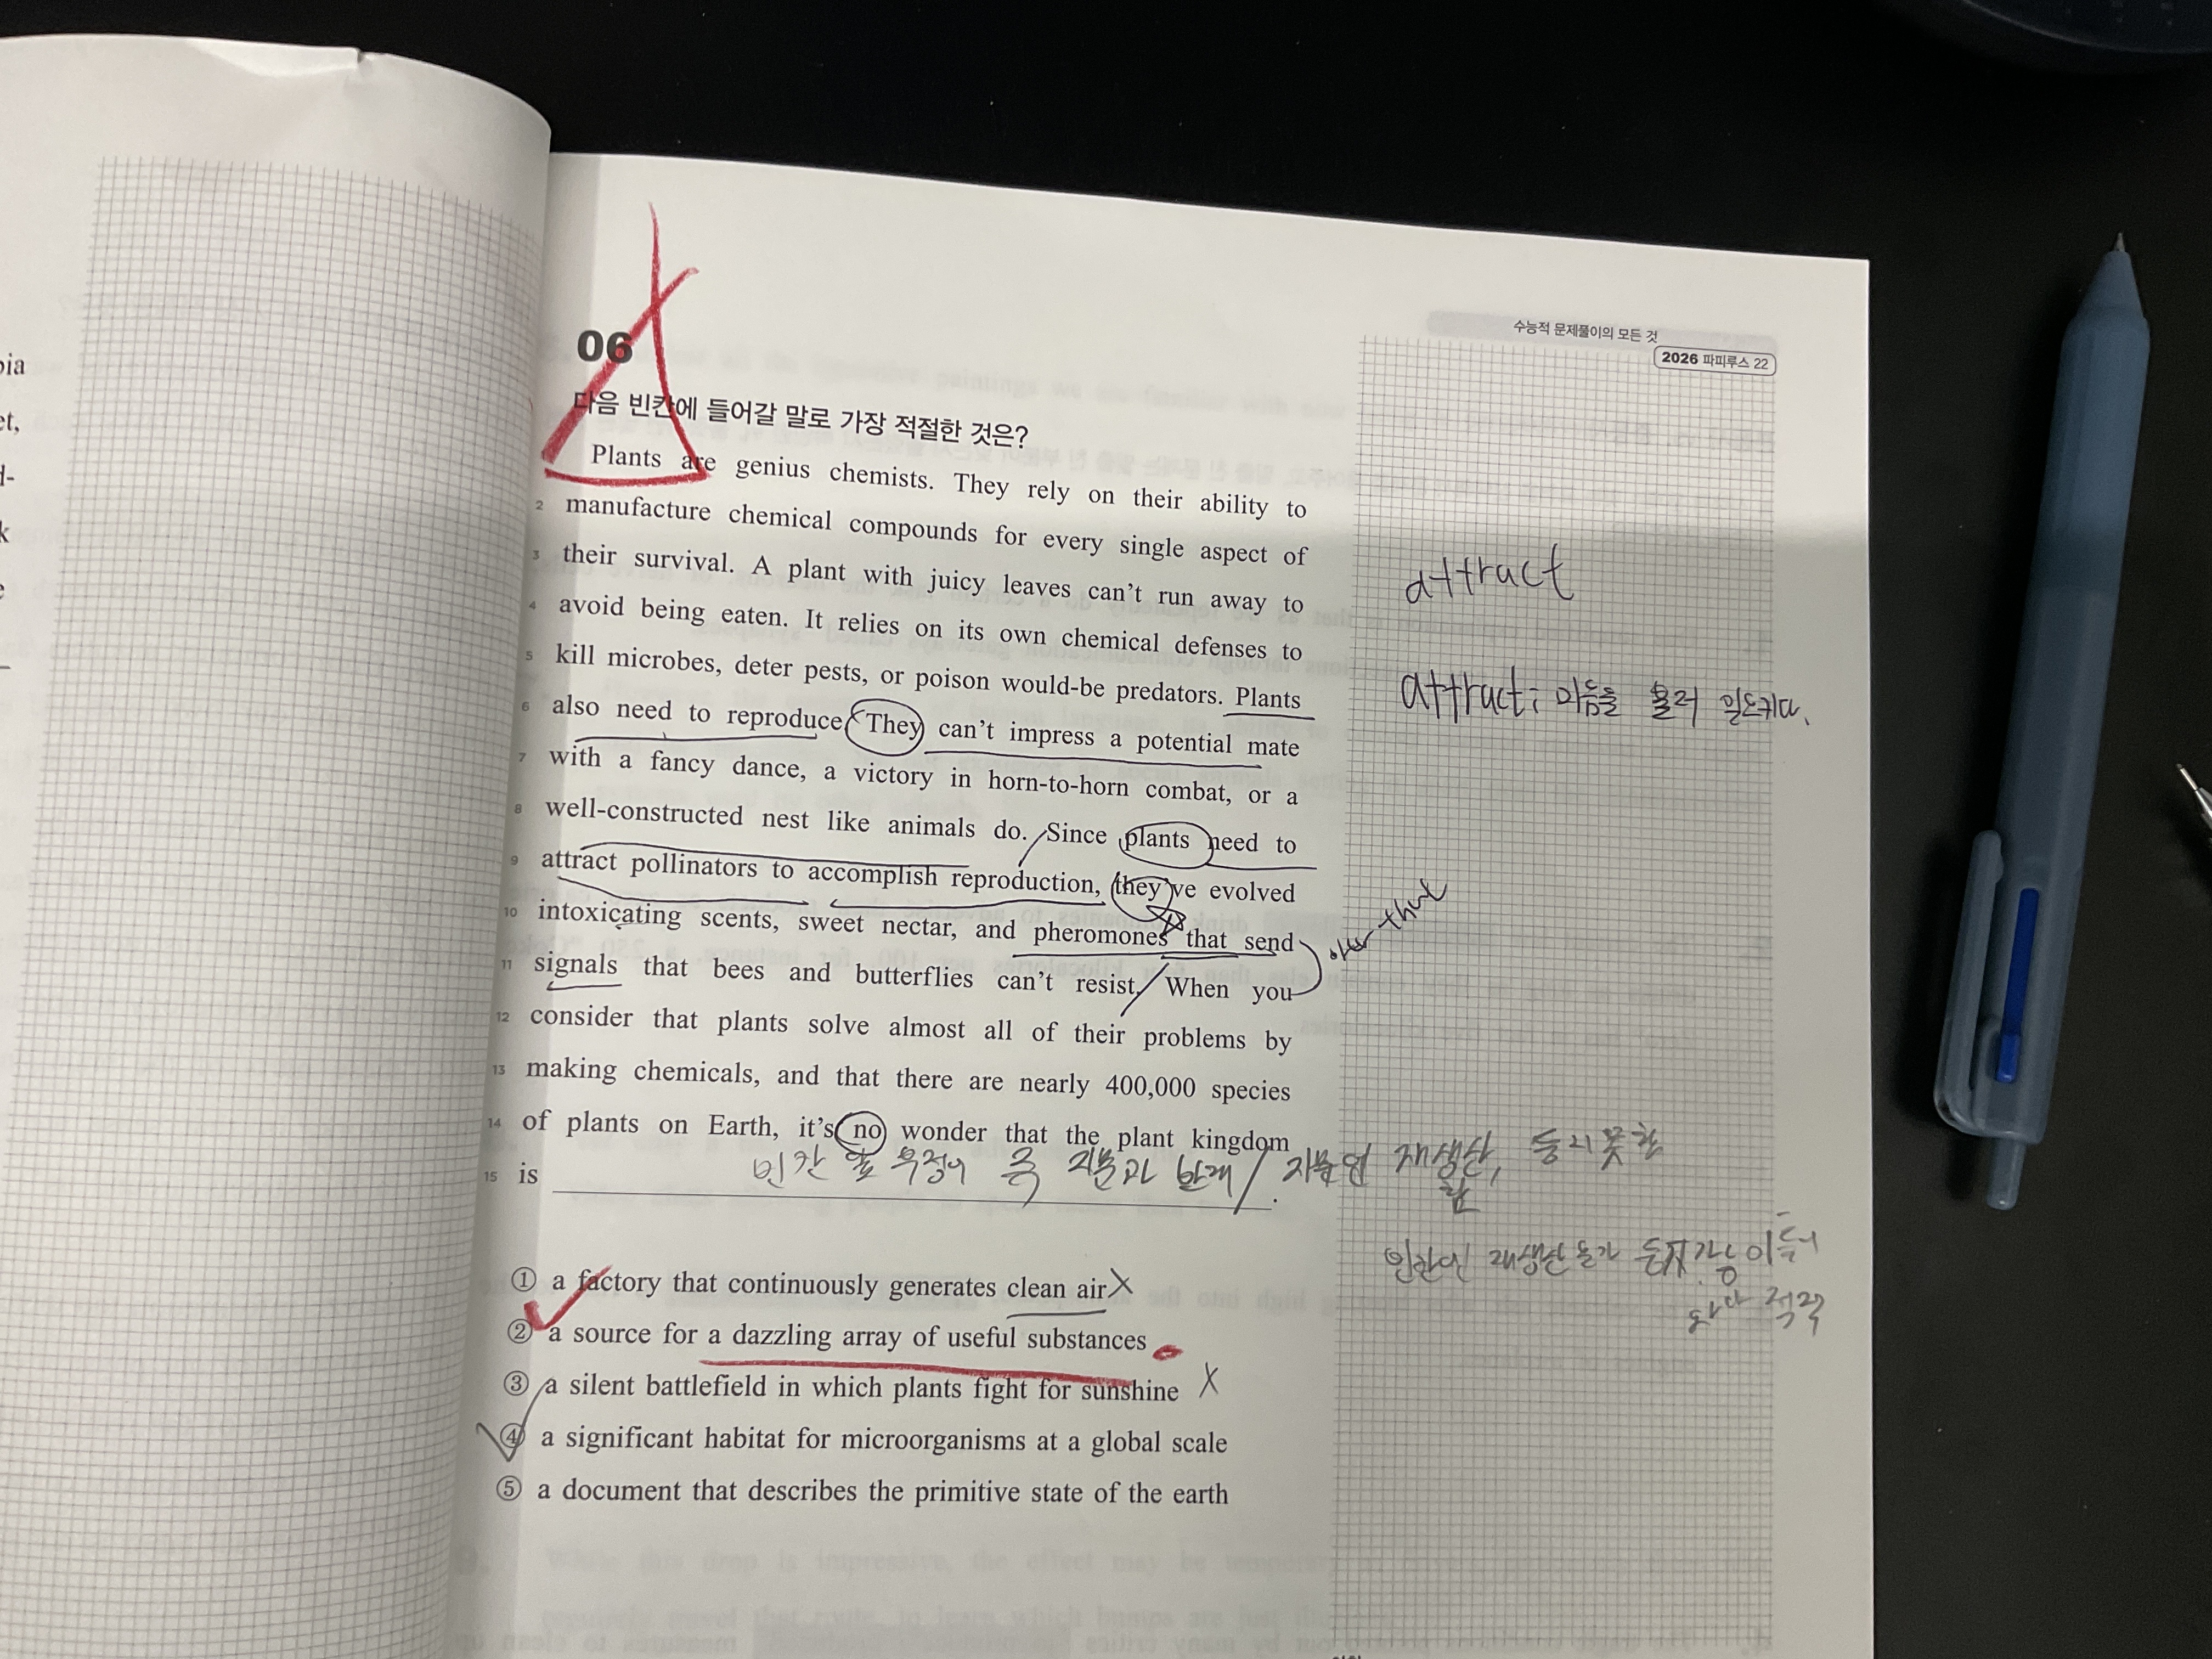 수능적 문제풀이의 모든 것
2026 파피루스 22
06
다음 빈칸에 들어갈 말로 가장 적절한 것은?
Plants are genius chemists. They rely on their ability to
2 manufacture chemical compounds for every single aspect of
3 their survival. A plant with juicy leaves can't run away to
4 avoid being eaten. It relies on its own chemical defenses to
5 kill microbes, deter pests, or poison would-be predators. Plants
6 also need to reproduce. They can't impress a potential mate
7 with a fancy dance, a victory in horn-to-horn combat, or a
8 well-constructed nest like animals do. Since plants need to
9 attract pollinators to accomplish reproduction, they've evolved
10 intoxicating scents, sweet nectar, and pheromones that send
11 signals that bees and butterflies can't resist. When you
12 consider that plants solve almost all of their problems by
13 making chemicals, and that there are nearly 400,000 species
14 of plants on Earth, it's no wonder that the plant kingdom
15 is
① a factory that continuously generates clean air X
② a source for a dazzling array of useful substances
③ a silent battlefield in which plants fight for sunshine X
④ a significant habitat for microorganisms at a global scale
⑤ a document that describes the primitive state of the earth
attract
attract: 마음을 불러 일으키다.
that
빈칸 앞 부정어 즉 지문과 반대 / 지문은 재생산,